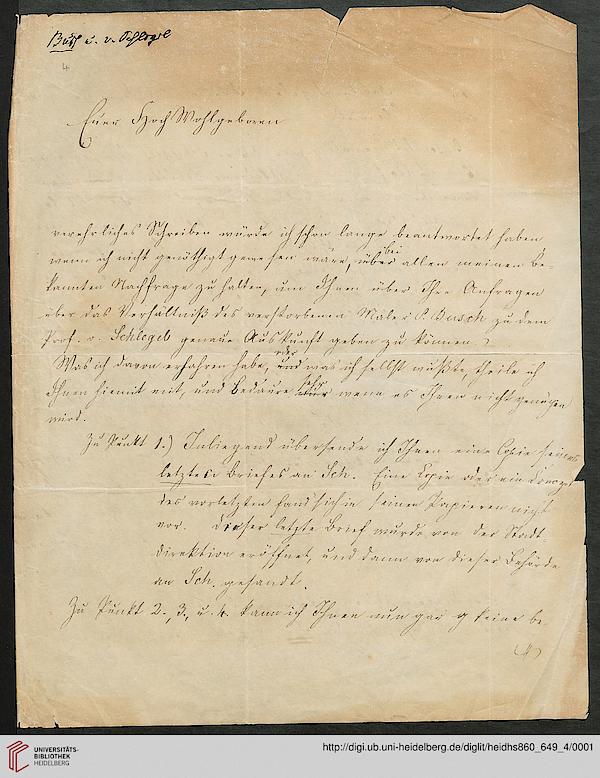 Busch u. v. Schlegel
4
Euer HochWohlgeboren
verehrliches Schreiben würde ich schon lange beantwortet haben
wenn ich nicht genöthigt gewesen wäre, über bei allen meinen Be-
kannten Nachfrage zu halten, um Ihnen über Ihre Anfragen
über das Verhältniß des verstorbenen Maler P. Busch zu dem
Prof. v. Schlegel genaue Auskunft geben zu können.
Was ich davon erfahren habe, und oder was ich selbst wußte, theile ich
Ihnen hiemit mit, und bedaure sehr wenn es Ihnen nicht genügen
wird.
Zu Punkt 1.) Inliegend übersende ich Ihnen eine Copie seines
letzten Briefes an Sch. Eine Copie oder ein Concept
des vorletzten fand sich in seinen Papieren nicht
vor. Dieser letzte Brief wurde von der Stadt-
direktion eröffnet, und dann von dieser Behörde
an Sch. gesandt.
Zu Punkt 2., 3., u. 4. kann ich Ihnen nun gar keine be-
UNIVERSITÄTS-
BIBLIOTHEK
HEIDELBERG
http://digi.ub.uni-heidelberg.de/diglit/heidhs860_649_4/0001